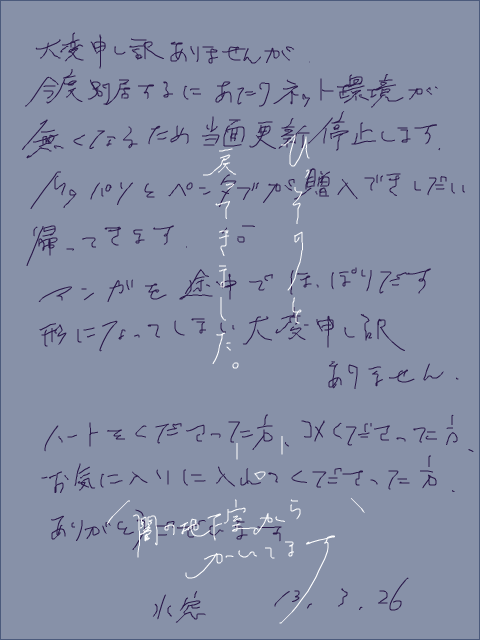 大変申し訳ありませんが
今度別居するにあたりネット環境が
無くなるため当面更新停止します.
パソとペンタブが購入できしだい
帰ってきます.
マンガを途中でほっぽりだす
形になってしまい大変申し訳
ありません.
ハートをくださった方、コメくださった方、
お気に入りに入れてくださった方.
ありがとうございます
水窓 13. 3. 26
戻ってきました。
(闇の地下室から
かいてます)